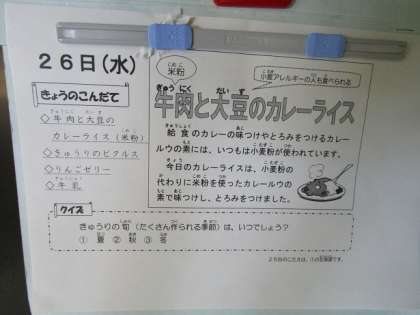 26日(水)
きょうのこんだて
◇牛肉と大豆の
カレーライス(米粉)
◇きゅうりのピクルス
◇りんごゼリー
◇牛乳
米粉
小麦アレルギーの人も食べられる
牛肉と大豆のカレーライス
給食のカレーの味つけやとろみをつけるカレー
ルウの素には、いつもは小麦粉が使われています。
今日のカレーライスは、小麦粉の
代わりに米粉を使ったカレールウの
素で味つけし、とろみをつけました。
クイズ
きゅうりの旬(たくさん作られる季節)は、いつでしょう?
① 夏 ② 秋 ③ 冬